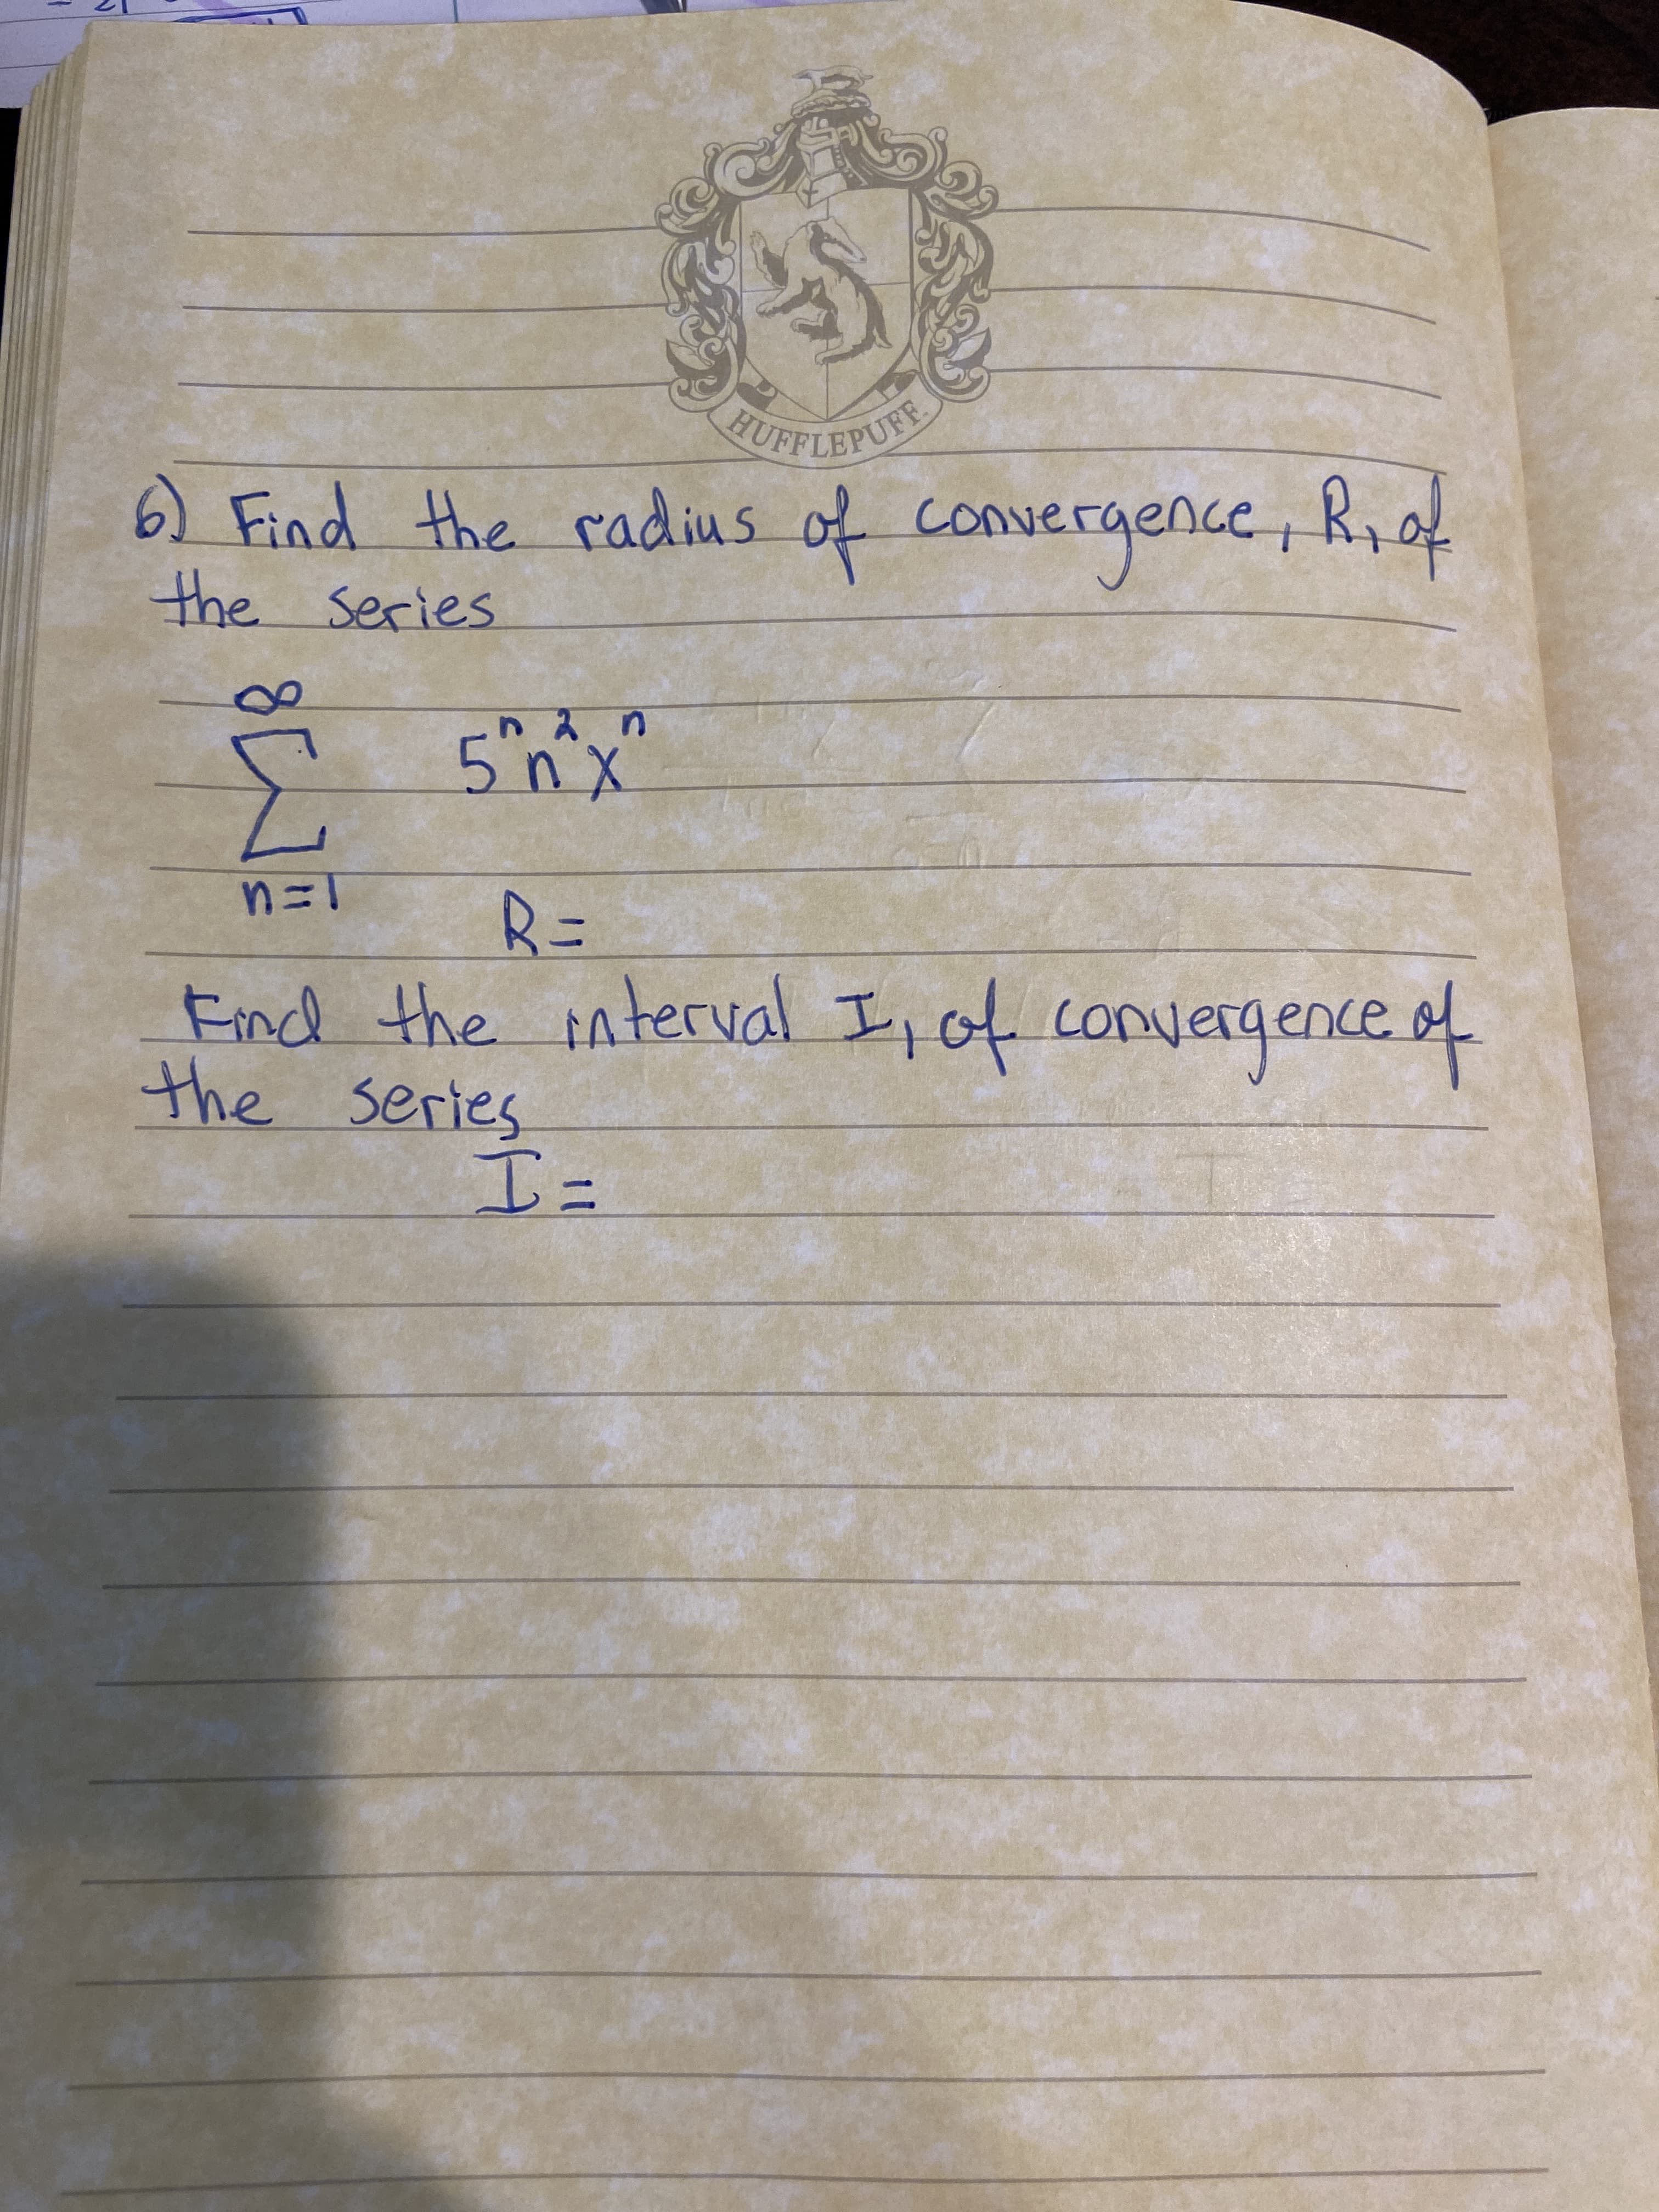 HUFFLEPUFF
6) Find the radius of convergence, R, of
the series
∞
Σ 5ⁿn²xⁿ
n=1
R=
Find the interval I, of convergence of
the series
I=